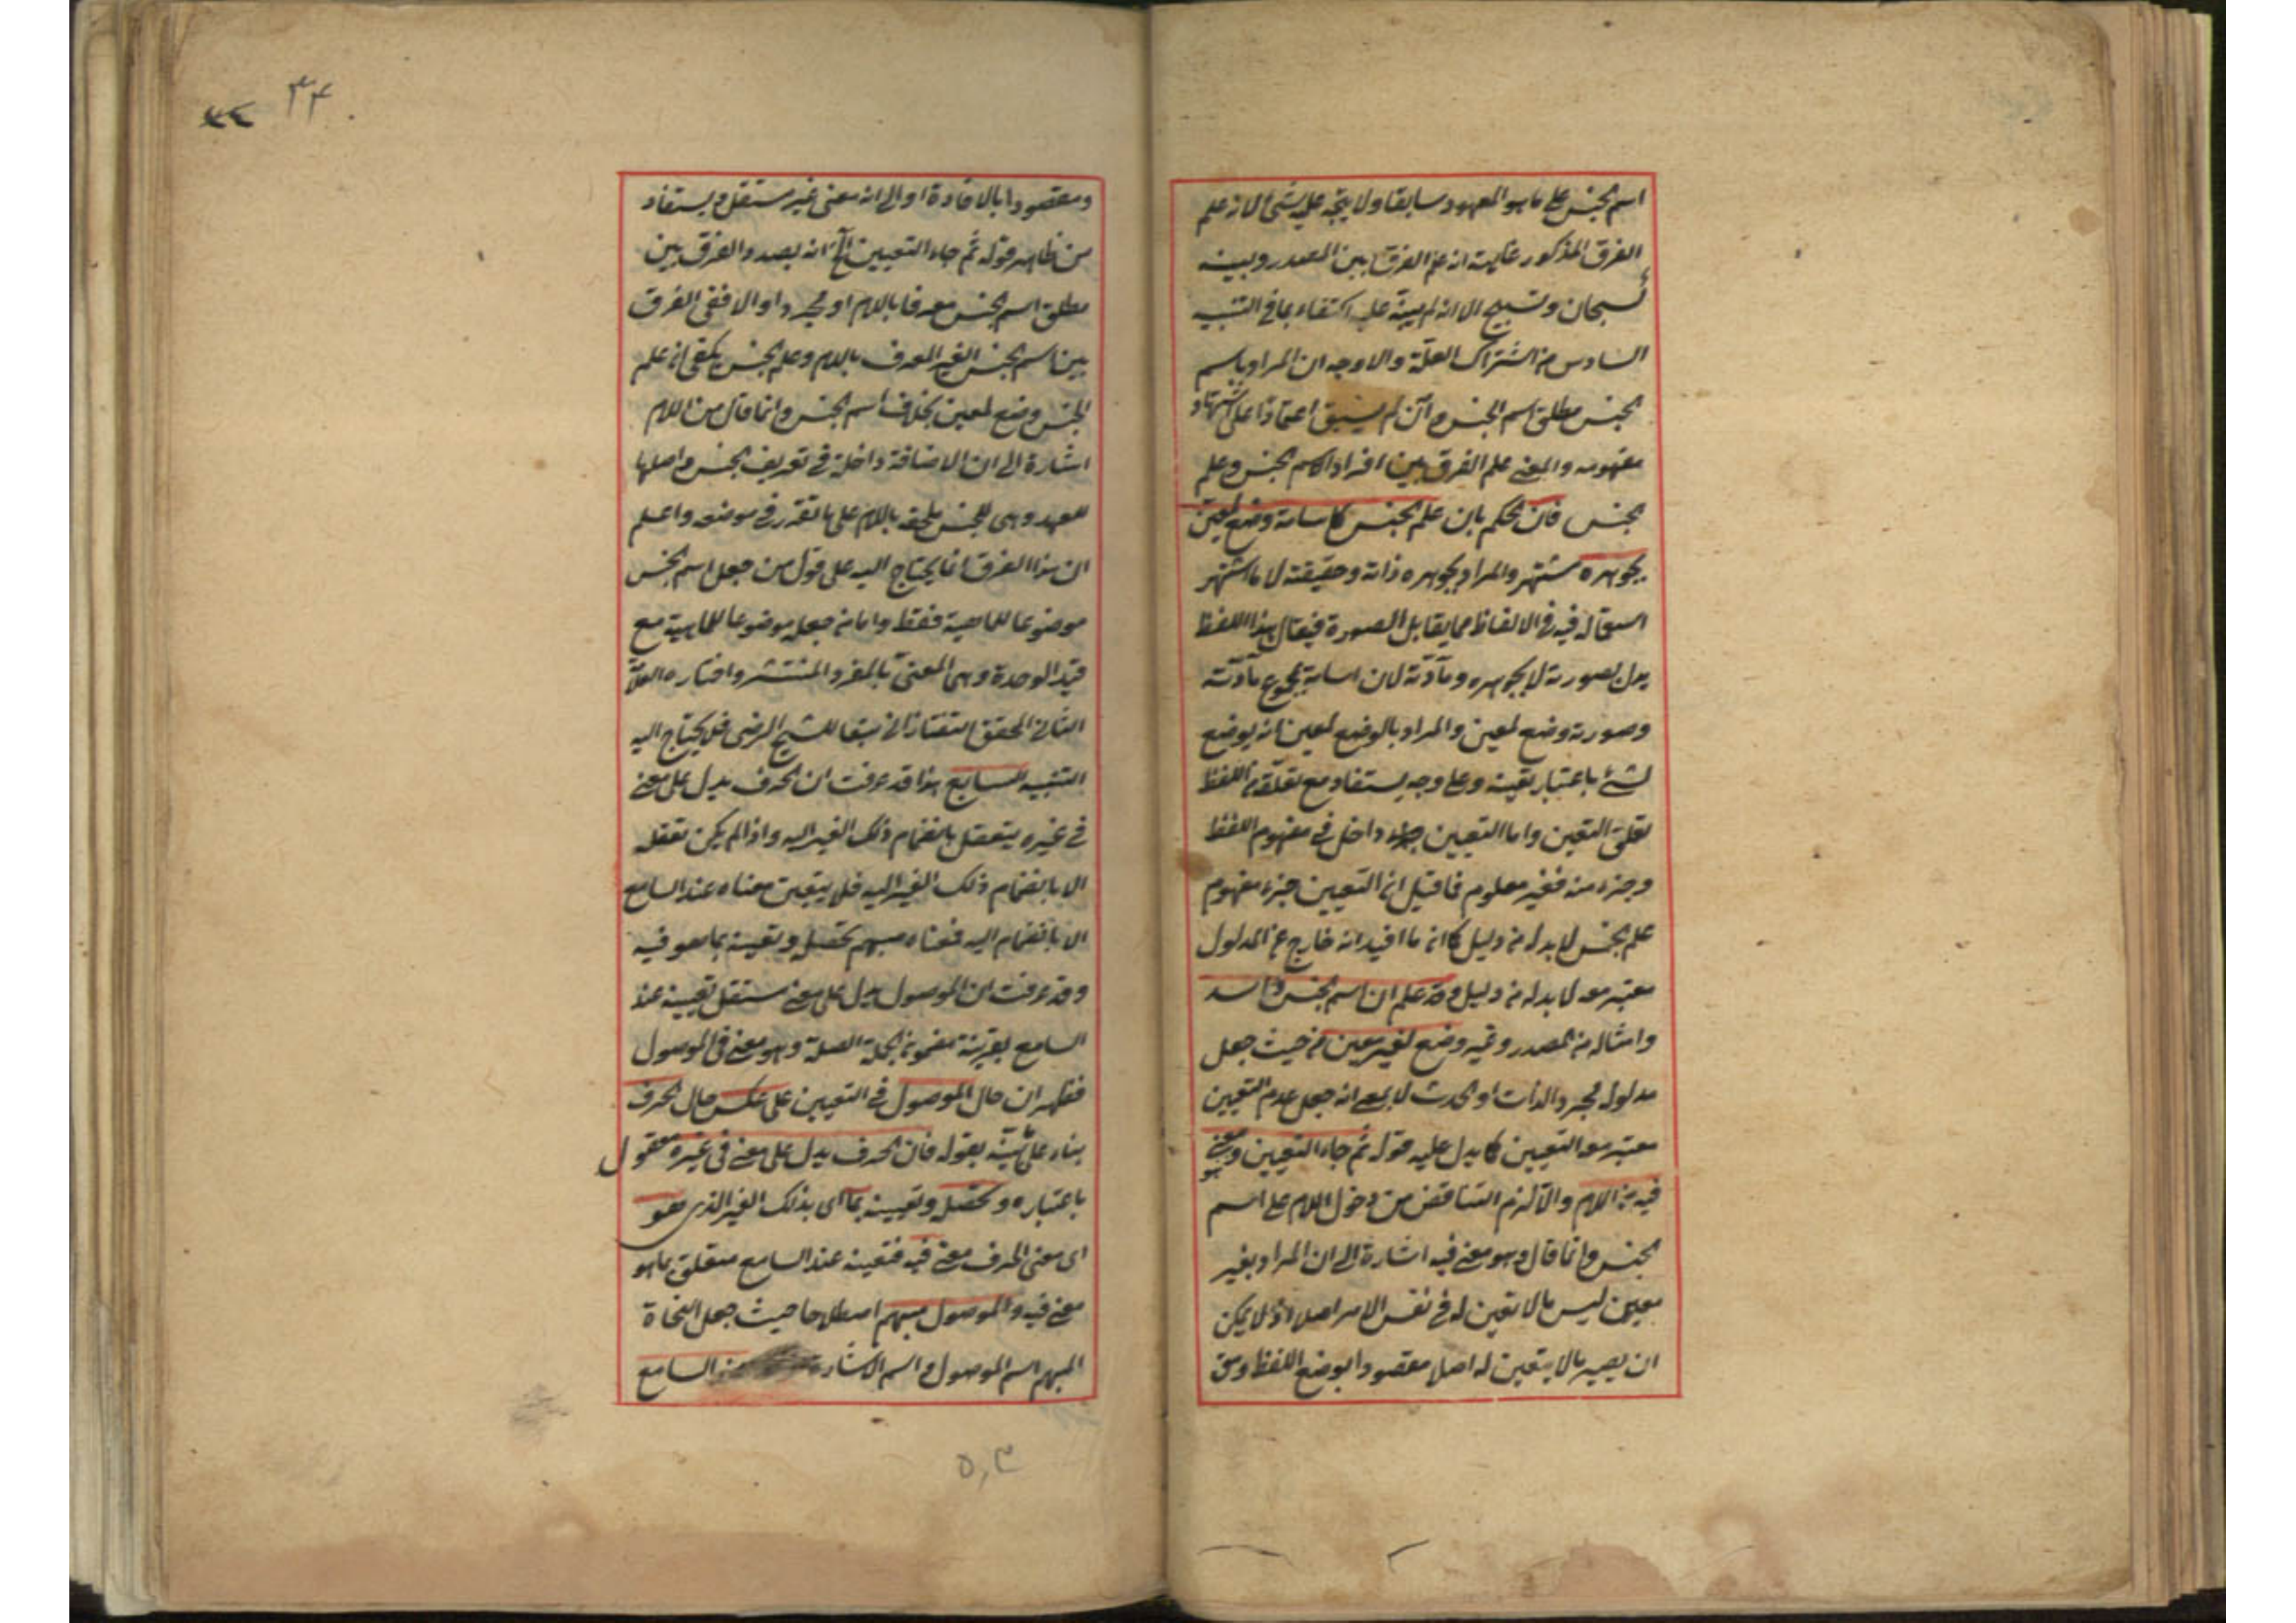 اسم الجنس على ما هو المعهود سابقا ولا يتجه عليه شئ الا انه علم
الفرق المذكور غايته انه علم الفرق بين المصدر وبينه
كسبحان وتسبيح الا انه لم ينبه عليه اكتفاء بما في التنبيه
السادس من اشتراك العلة والاوجه ان المراد باسم
الجنس مطلق اسم الجنس وان لم يسبق اعتمادا على اشتهار
مفهومه والمعنى علم الفرق بين افراد اسم الجنس وعلم
الجنس فان الحكم بان علم الجنس كاسامة وضع لمعين
بجوهره مشتهر والمراد بجوهره ذاته وحقيقته لا ما اشتهر
استعماله فيه في الالفاظ مما يقابل الصورة فيقال هذا اللفظ
يدل بصورته لا بجوهره ومادته لان اسامة بمجموع مادته
وصورته وضع لمعين والمراد بالوضع لمعين انه يوضع
لشئ باعتبار تعينه وعلى وجه يستفاد مع تعلقه من اللفظ
تعلق التعين واما التعيين داخل في مفهوم اللفظ
وجزء منه فغير معلوم فما قيل ان التعيين جزء مفهوم
علم الجنس لا بد له من دليل كما ان ما افيد انه خارج عن المدلول
معتبر معه لا بد له من دليل وقد علم ان اسم الجنس كاسد
وامثاله من المصدر وغيره وضع لغير معين من حيث جعل
مدلوله مجرد الذات او الحدث لا بمعنى انه جعل عدم التعيين
معتبر مع التعيين كما يدل عليه قوله ثم جاء التعيين وهو معنى
فيه من اللام والا لزم التناقض من دخول اللام على اسم
الجنس وانما قال وهو معنى فيه اشارة الى ان المراد بغير
معين ليس ما لا تعين له في نفس الامر اصلا اذ لا يمكن
ان يصير ما لا يتعين له اصلا مقصودا بوضع اللفظ
ومقصودا بالافادة او الى انه معنى غير مستقل ويستفاد
من ظاهر قوله ثم جاء التعيين الخ انه بصدد الفرق بين
مطلق اسم الجنس معرفا باللام او مجردا والا ففي الفرق
بين اسم الجنس الغير المعرف باللام وعلم الجنس يكفي ان علم
الجنس وضع لمعين بخلاف اسم الجنس وانما قال من اللام
اشارة الى ان الاضافة داخلة في تعريف الجنس واصلها
للعهد وهي للجنس ملحق باللام على ما تقرر في موضعه واعلم
ان هذا الفرق انما يحتاج اليه على قول من جعل اسم الجنس
موضوعا للماهية فقط واما من جعله موضوعا للماهية مع
قيد الوحدة وهي المعنى بالفرد المنتشر واختاره العلامة
الثاني المحقق التفتازاني تبعا للشيخ الرضى فلا يحتاج اليه
التنبيه السابع هذا قد عرفت ان الحرف يدل على معنى
في غيره يتعقل بانضمام ذلك الغير اليه واذا لم يكن تعقله
الا بانضمام ذلك الغير اليه فلا يتعين معناه عند السامع
الا بانضمام اليه فمعناه مبهم تحصله وتعينه بما هو فيه
وقد عرفت ان الموصول يدل على معنى مستقل تعيينه عند
السامع بقرينة مضمون الجملة الصلة وهو معنى في الموصول
فظهر ان حال الموصول في التعيين على عكس حال الحرف
بناء على بينه بقوله فان الحرف يدل على معنى في غيره معقول
باعتباره وتحصله وتعيينه بما اى بذلك الغير الذى هو
اى معنى الحرف معنى فيه فتعينه عند السامع متعلق بما هو
معنى فيه والموصول مبهم اصطلاحا حيث جعل النحاة
المبهم اسم الموصول واسم الاشارة عند السامع
٣٤